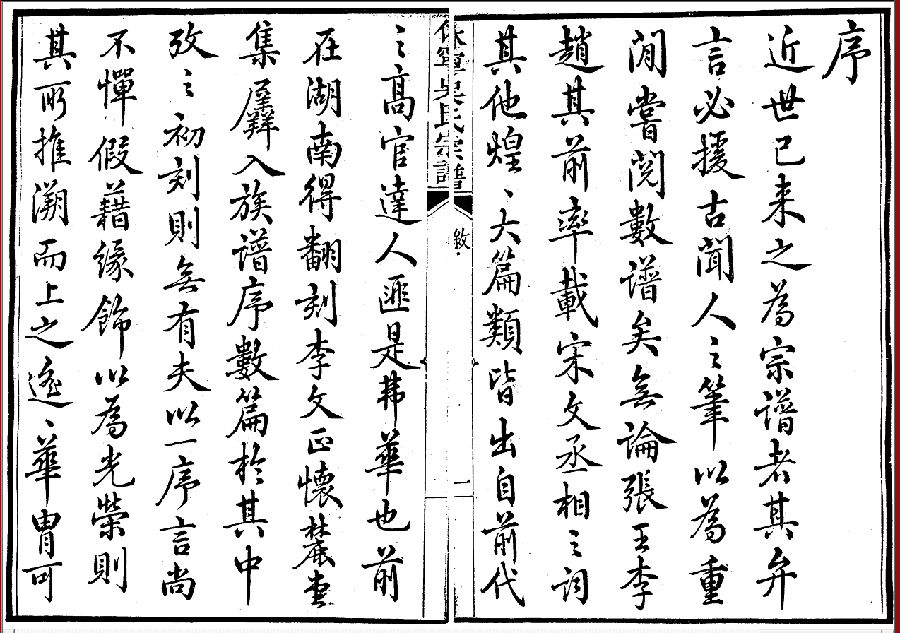 序
近世已来之為宗譜者其弁
言必援古聞人之筆以為重
間嘗閱數譜矣無論張王李
趙其前率載宋文丞相之詞
其他煌〻大篇類皆出自前代
休寧吳氏宗譜
敘
一
之高官達人匪是弗華也前
在湖南得翻刻李文正懷麓堂
集羼入族譜序數篇於其中
攷之初刻則無有夫以一序言尚
不憚假藉緣飾以為光榮則
其所推溯而上之遙〻華冑可